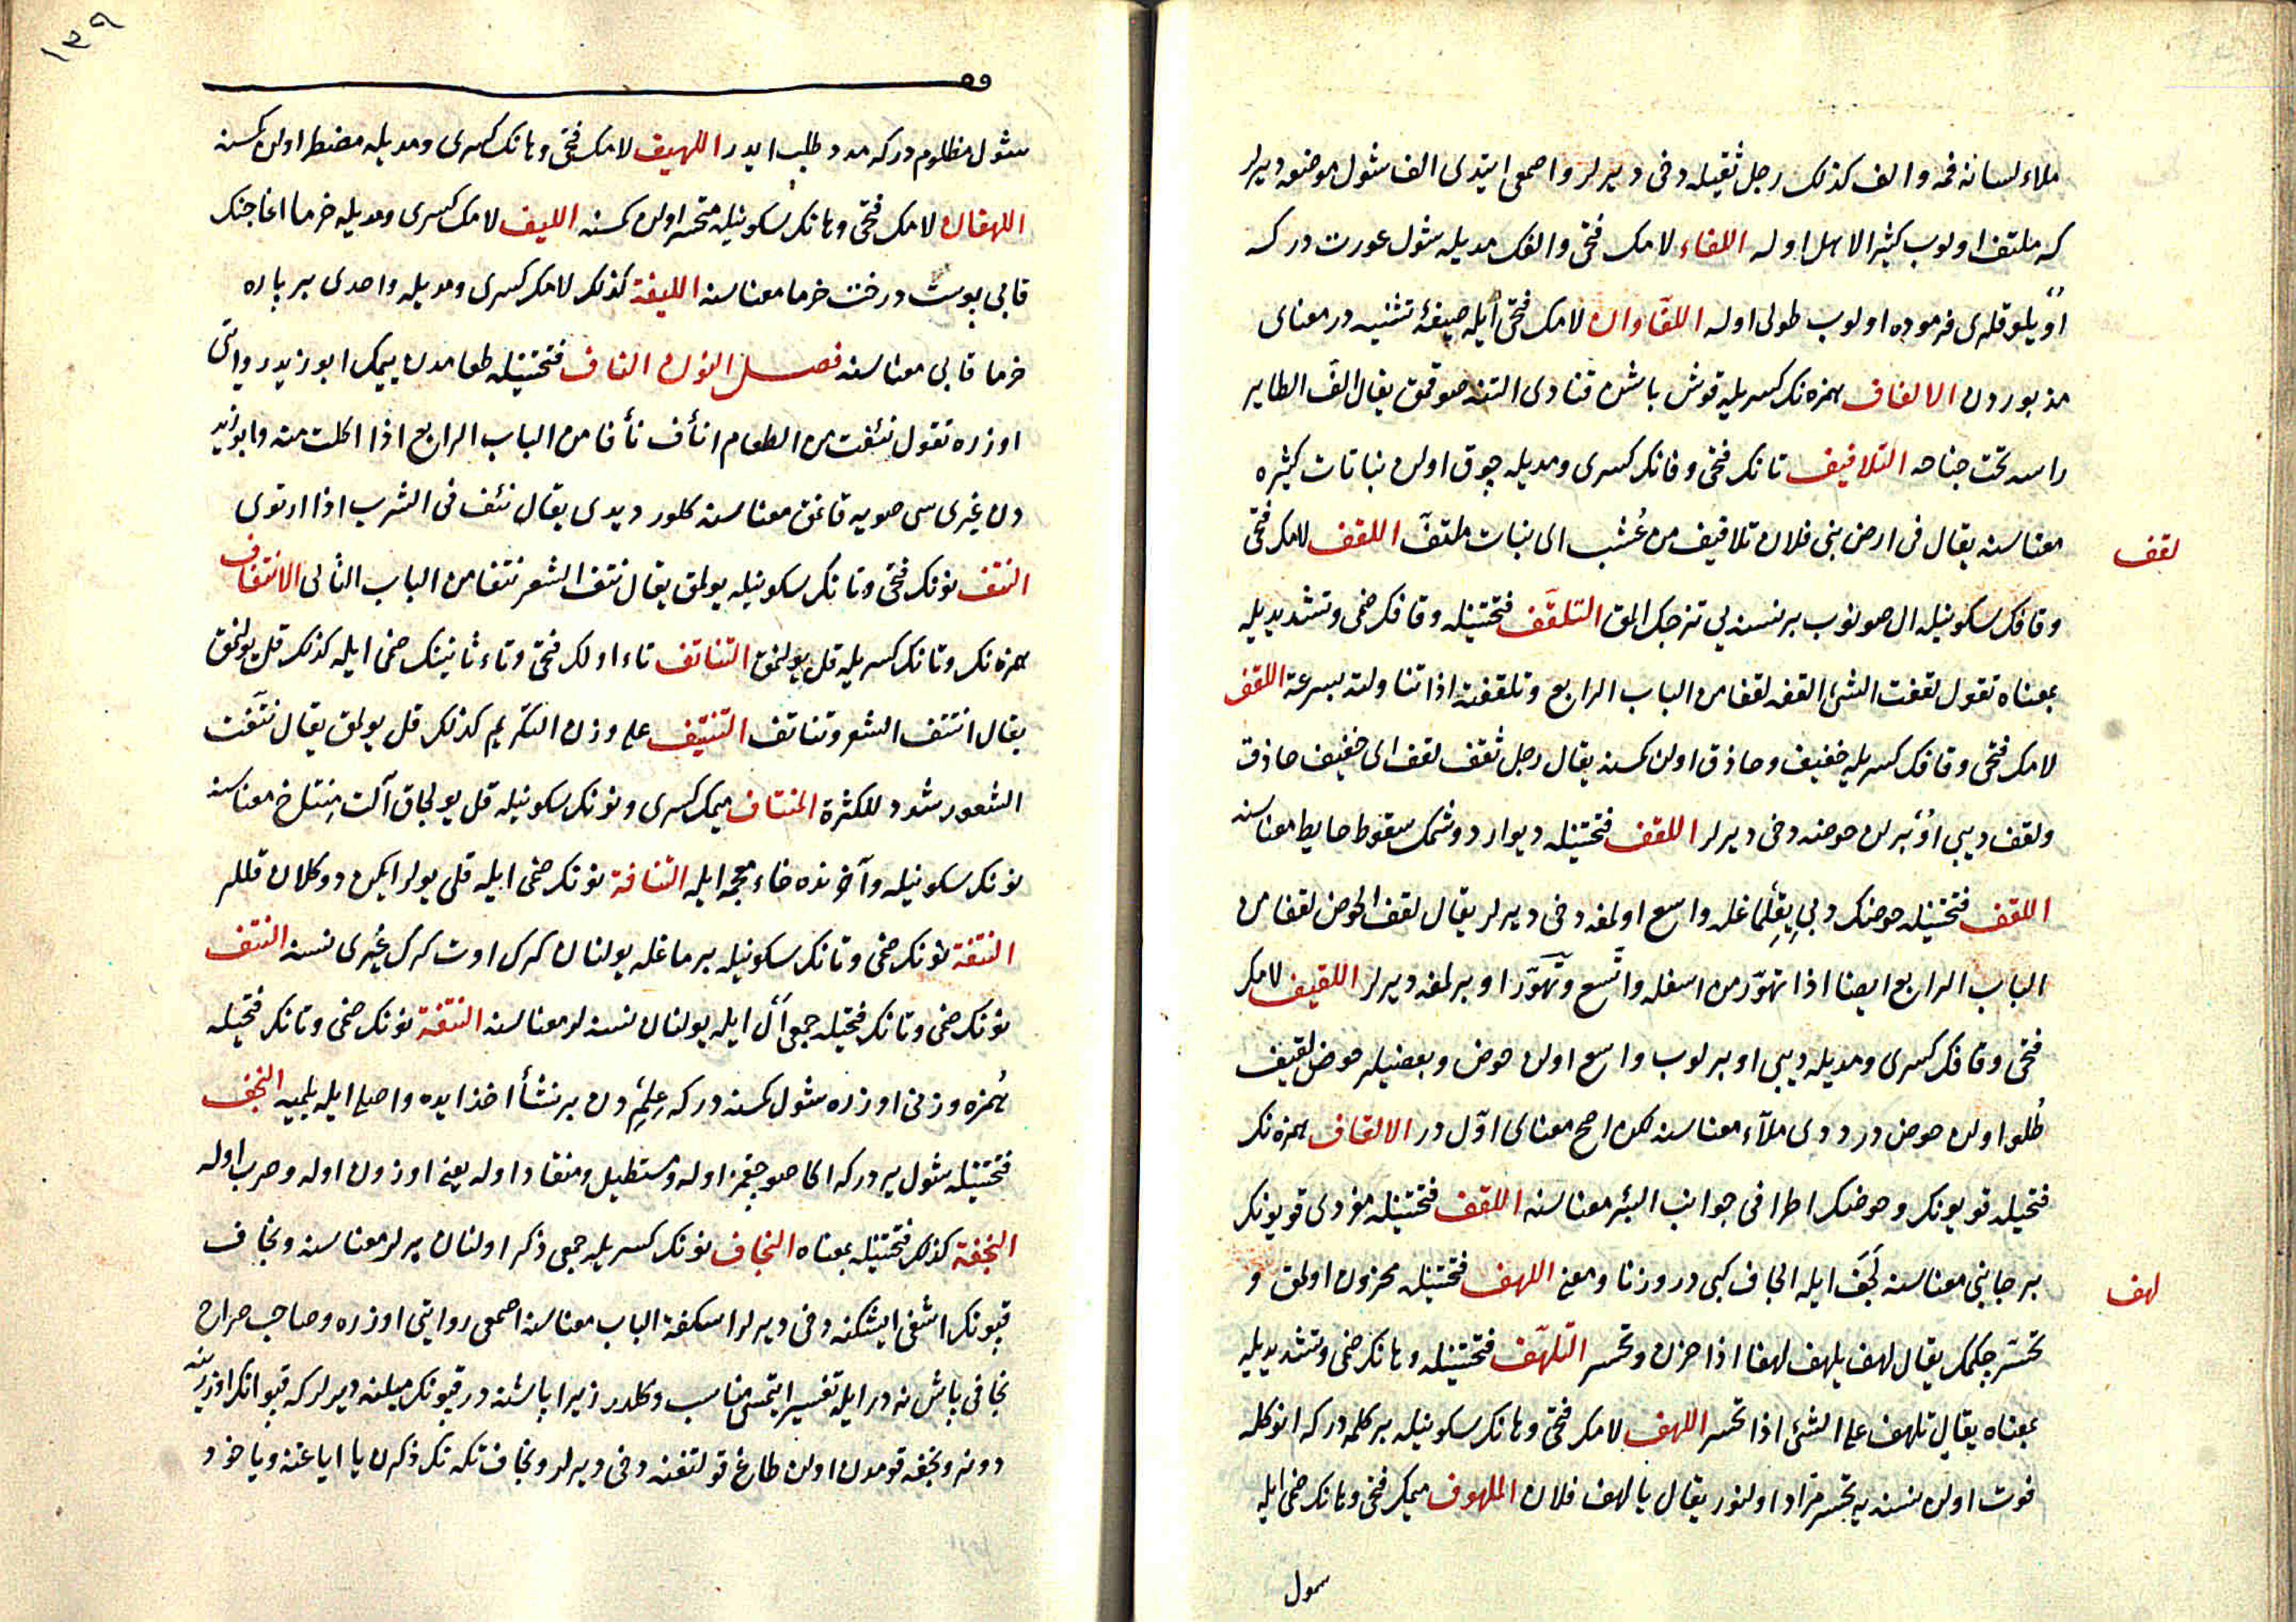 ملاء لسانه فمه والف كذلك رجل ثقيله دخى ديرلر واصمعى ايتدى الف شول موضعه ديرلر
كه ملتف اولوب كثير الاهل اوله اللفاء لامك فتحى والفك مديله شول عورت دركه
اويلوقلرى فرموده اولوب طولى اوله اللفاوان لامك فتحى ايله صيغهٔ تثنيه در معناى
مذبوردن الالفاف همزه نك كسريله قوش باشن قنادى التنه صوقمق يقال الف الطاير
راسه تحت جناحه التلافيف تانك فتحى وفانك كسرى ومديله چوق اولن نباتات كثيره
معناسنه يقال فى ارض بنى فلان تلافيف من عُشب اى نبات ملتفّ اللقف لامك فتحى
لقف
وقافك سكونيله ال صونوب بر نسنه يى تزجك المق التلقّف فتحتينله وقافك ضمى وتشديديله
بمعناه تقول لقفت الشئ القفه لقفا من الباب الرابع وتلقفته اذا تناولته بسرعة اللقف
لامك فتحى وقافك كسريله خفيف وحاذق اولن كمسنه يقال رجل ثقف لقف اى خفيف حاذق
ولقف ديبى اوُبرلن حوضه دخى ديرلر اللقف فتحتينله ديوار دوشمك سقوط حايط معناسنه
اللقف فتحتينله حوضك دبى يقلماغله واسع اولمغه دخى ديرلر يقال لقف الحوض لقفا من
الباب الرابع ايضا اذا تهوّر من اسفله واتّسع وتهوّر اوبرلمغه ديرلر اللقيف لامك
فتحى وقافك كسرى ومديله ديبى اوبرلوب واسع اولن حوض وبعضيلر حوض لقيف
طُلو اولن حوض در ددى ملآء معناسنه لكن اصح معناى اوّل در الالقاف همزه نك
فتحيله قويونك وحوضك اطرافى جوانب البئر معناسنه اللقف فتحتينله مفردى قويونك
بر جانبى معناسنه لَجَف ايله الجاف كبى در وزنا ومعنى اللهف فتحتينله محزون اولمق و
لهف
تحسّر چكمك يقال لهف يلهف لهفا اذا حزن وتحسر التلهّف فتحتينله وهانك ضمى وتشديديله
بمعناه يقال تلهف على الشئ اذا تحسر اللهف لامك فتحى وهانك سكونيله بر كلمه دركه انوكله
فوت اولن نسنه يه تحسر مراد اولنور يقال يا لهف فلان الملهوف ميمك فتحى وهانك ضمى ايله
سول
١٣٩
شول مظلوم دركه مدد طلب ايدر اللهيف لامك فتحى وهانك كسرى ومديله مضطر اولن كمسنه
اللهفان لامك فتحى وهانك سكونيله متحسر اولن كمسنه الليف لامك كسرى ومديله خرما اغاجنك
قابى پوست درخت خرما معناسنه الليفة كذلك لامك كسرى ومديله واحدى بر پاره
خرما قابى معناسنه فصل النون النأف فتحتينله طعامدن ييمك ابو زيد روايتى
اوزره تقول نئفت من الطعام انأف نأفا من الباب الرابع اذا اكلت منه وابو زيد
دن غيرى سى صويه قانمق معناسنه كلور ديدى يقال نئف فى الشرب اذا ارتوى
النتف نونك فتحى وتانك سكونيله يولمق يقال نتف الشعر نتفا من الباب الثانى الانتتاف
همزه نك وتانك كسريله قل يولنمق التناتف تاء اولك فتحى وتاء ثانينك ضمى ايله كذلك قل يولنمق
يقال انتتف الشعر وتناتف التنتيف على وزن التكريم كذلك قل يولمق يقال نتّفت
الشعور شدد للكثرة المنتاف ميمك كسرى ونونك سكونيله قل يولجاق آلت منتاخ معناسنه
نونك سكونيله وآخرنده خاء معجمه ايله النتافة نونك ضمى ايله قلى يولرايكن دوكلان قللر
النتفة نونك ضمى وتانك سكونيله برماغله يولنان كرك اوت كرك غيرى نسنه النتف
نونك ضمى وتانك فتحيله جمعى ال ايله يولنان نسنه لر معناسنه النتفة نونك ضمى وتانك فتحيله
هُمزه وزنى اوزره شول كمسنه دركه علم دن بر نشأ اخذ ايده واصلى ايله بلميه النجف
فتحتينله شول ير دركه اكا صو چقمز اوله ومستطيل ومنقاد اوله يعنى اوزون اوله وصرب اوله
النجفة كذلك فتحتينله بمعناه النجاف نونك كسريله جمعى ذكر اولنان يرلر معناسنه ونجاف
قپونك اشغى ايشكنه دخى ديرلر اسكفة الباب معناسنه اصمعى روايتى اوزره وصاحب صراح
نجافى باش نه در ايله تفسير ايتمسى مناسب دكلدر زيرا باشنه در قپونك ميلنه ديرلر كه قپو انك اوزرينه
دونر ونجفه قومدن اولن طاغ قولتغنه دخى ديرلر ونجاف تكه نك ذكرن يا اياغنه وياخود